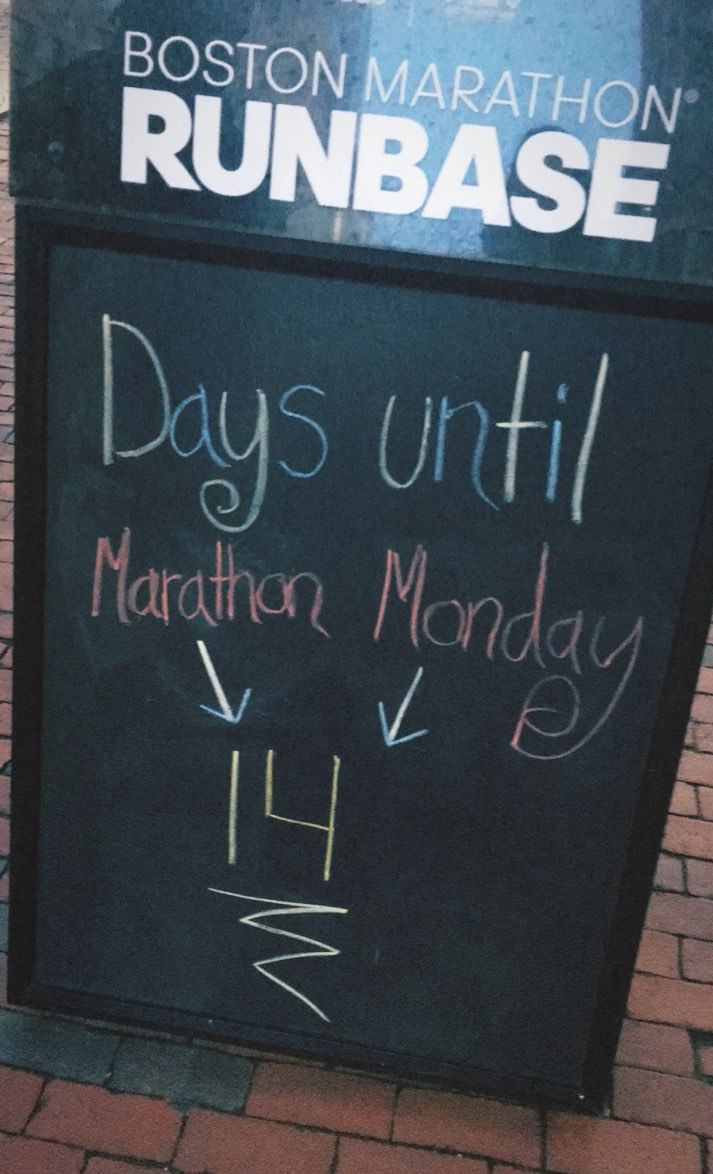 BOSTON MARATHON®
RUNBASE
Days until
Marathon Monday
14